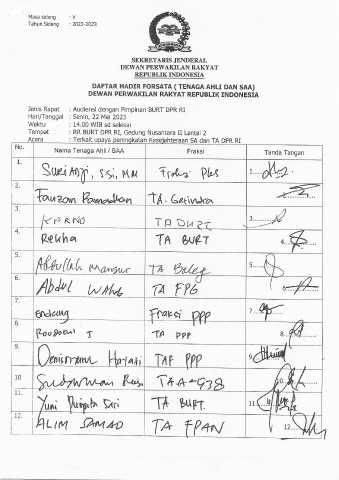 Masa sidang : V
Tahun Sidang : 2022-2023
SEKRETARIS JENDERAL
DEWAN PERWAKILAN RAKYAT
REPUBLIK INDONESIA
DAFTAR HADIR FORSATA ( TENAGA AHLI DAN SAA)
DEWAN PERWAKILAN RAKYAT REPUBLIK INDONESIA
Jenis Rapat : Audiensi dengan Pimpinan BURT DPR RI
Hari/Tanggal : Senin, 22 Mei 2023
Waktu : 14.00 WIB sd selesai
Tempat : RR BURT DPR RI, Gedung Nusantara II Lantai 2
Acara : Terkait upaya peningkatan Kesejahteraan SA dan TA DPR RI
No. Nama Tenaga Ahli / SAA Fraksi Tanda Tangan
1. S.Si, MM PKS 1
2. Fauzan Ramadhan TA. Gerindra 2
3. KARNO TA BURT 3
4. Rekha TA BURT 4
5. Abdullah Mansur TA Baleg 5
6. Abdul Wahab TA FPG 6
7. Endang Fraksi PPP 7
8. TA PPP 8
9. Hayati TAF PPP 9
10 Sudarman TAA-
11. Yuni Sari TA BURT. 11
12. ALIM SAMAD TA FPAN 12